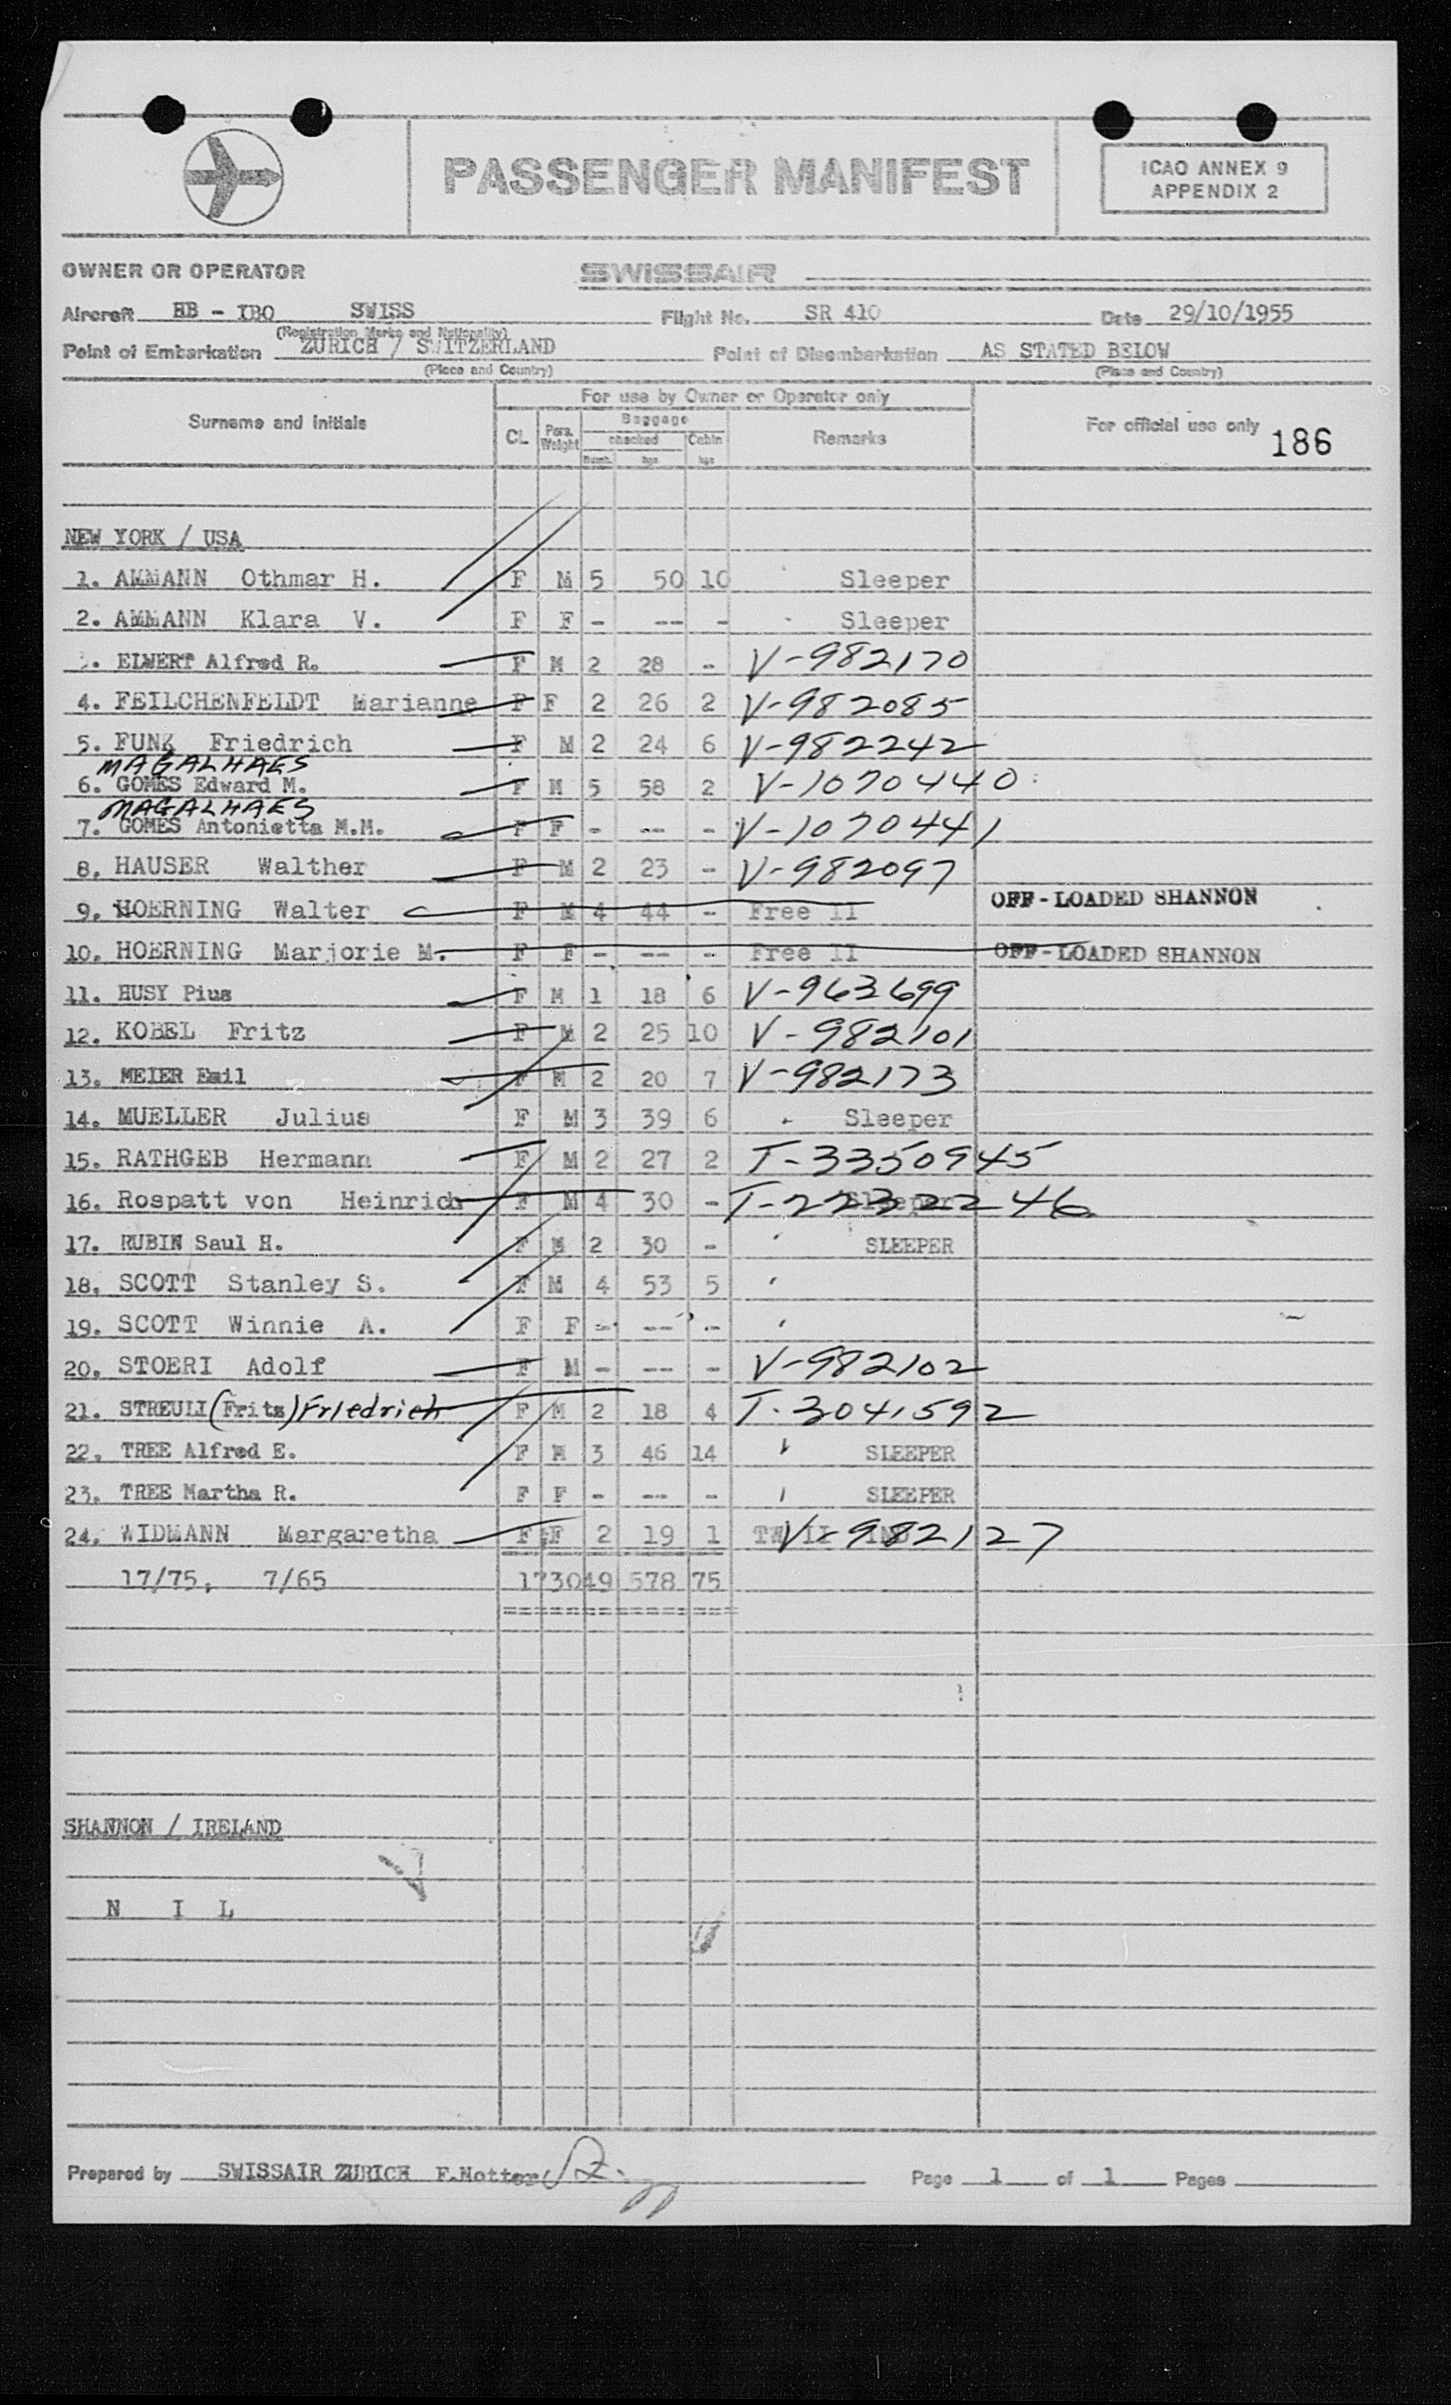 PASSENGER MANIFEST
ICAO ANNEX 9
APPENDIX 2
OWNER OR OPERATOR SWISSAIR
Aircraft HB - IBO SWISS Flight No. SR 410 Date 29/10/1955
(Registration Marks and Nationality)
Point of Embarkation ZURICH / SWITZERLAND Point of Disembarkation AS STATED BELOW
(Place and Country) (Place and Country)
For use by Owner or Operator only
Surname and initials CL Pers. Weight Baggage checked Cabin Remarks For official use only 186
Numb. kgs kgs
NEW YORK / USA
1. AMMANN Othmar H. F M 5 50 10 Sleeper
2. AMMANN Klara V. F F - -- - Sleeper
. ELWERT Alfred R. F M 2 28 - V-982170
4. FEILCHENFELDT Marianne F F 2 26 2 V-982085
5. FUNK Friedrich F M 2 24 6 V-982242
MAGALHAES
6. GOMES Edward M. F M 5 58 2 V-1070440
MAGALHAES
7. GOMES Antonietta M.M. F F - -- - V-1070441
8. HAUSER Walther F M 2 23 - V-982097
9. HOERNING Walter F M 4 44 - Free II OFF-LOADED SHANNON
10. HOERNING Marjorie M. F F - -- - Free II OFF-LOADED SHANNON
11. HUSY Pius F M 1 18 6 V-963699
12. KOBEL Fritz F M 2 25 10 V-982101
13. MEIER Emil F M 2 20 7 V-982173
14. MUELLER Julius F M 3 39 6 Sleeper
15. RATHGEB Hermann F M 2 27 2 T-3350945
16. Rospatt von Heinrich F M 4 30 - Sleeper T-2232246
17. RUBIN Saul H. F M 2 30 - SLEEPER
18. SCOTT Stanley S. F M 4 53 5
19. SCOTT Winnie A. F F - -- -
20. STOERI Adolf F M - -- - V-982102
21. STREULI (Fritz) Friedrich F M 2 18 4 T-3041592
22. TREE Alfred E. F M 3 46 14 SLEEPER
23. TREE Martha R. F F - -- - SLEEPER
24. WIDMANN Margaretha F F 2 19 1 V-982127
17/75, 7/65 1730 49 578 75
SHANNON / IRELAND
N I L
Prepared by SWISSAIR ZURICH F.Notter Page 1 of 1 Pages